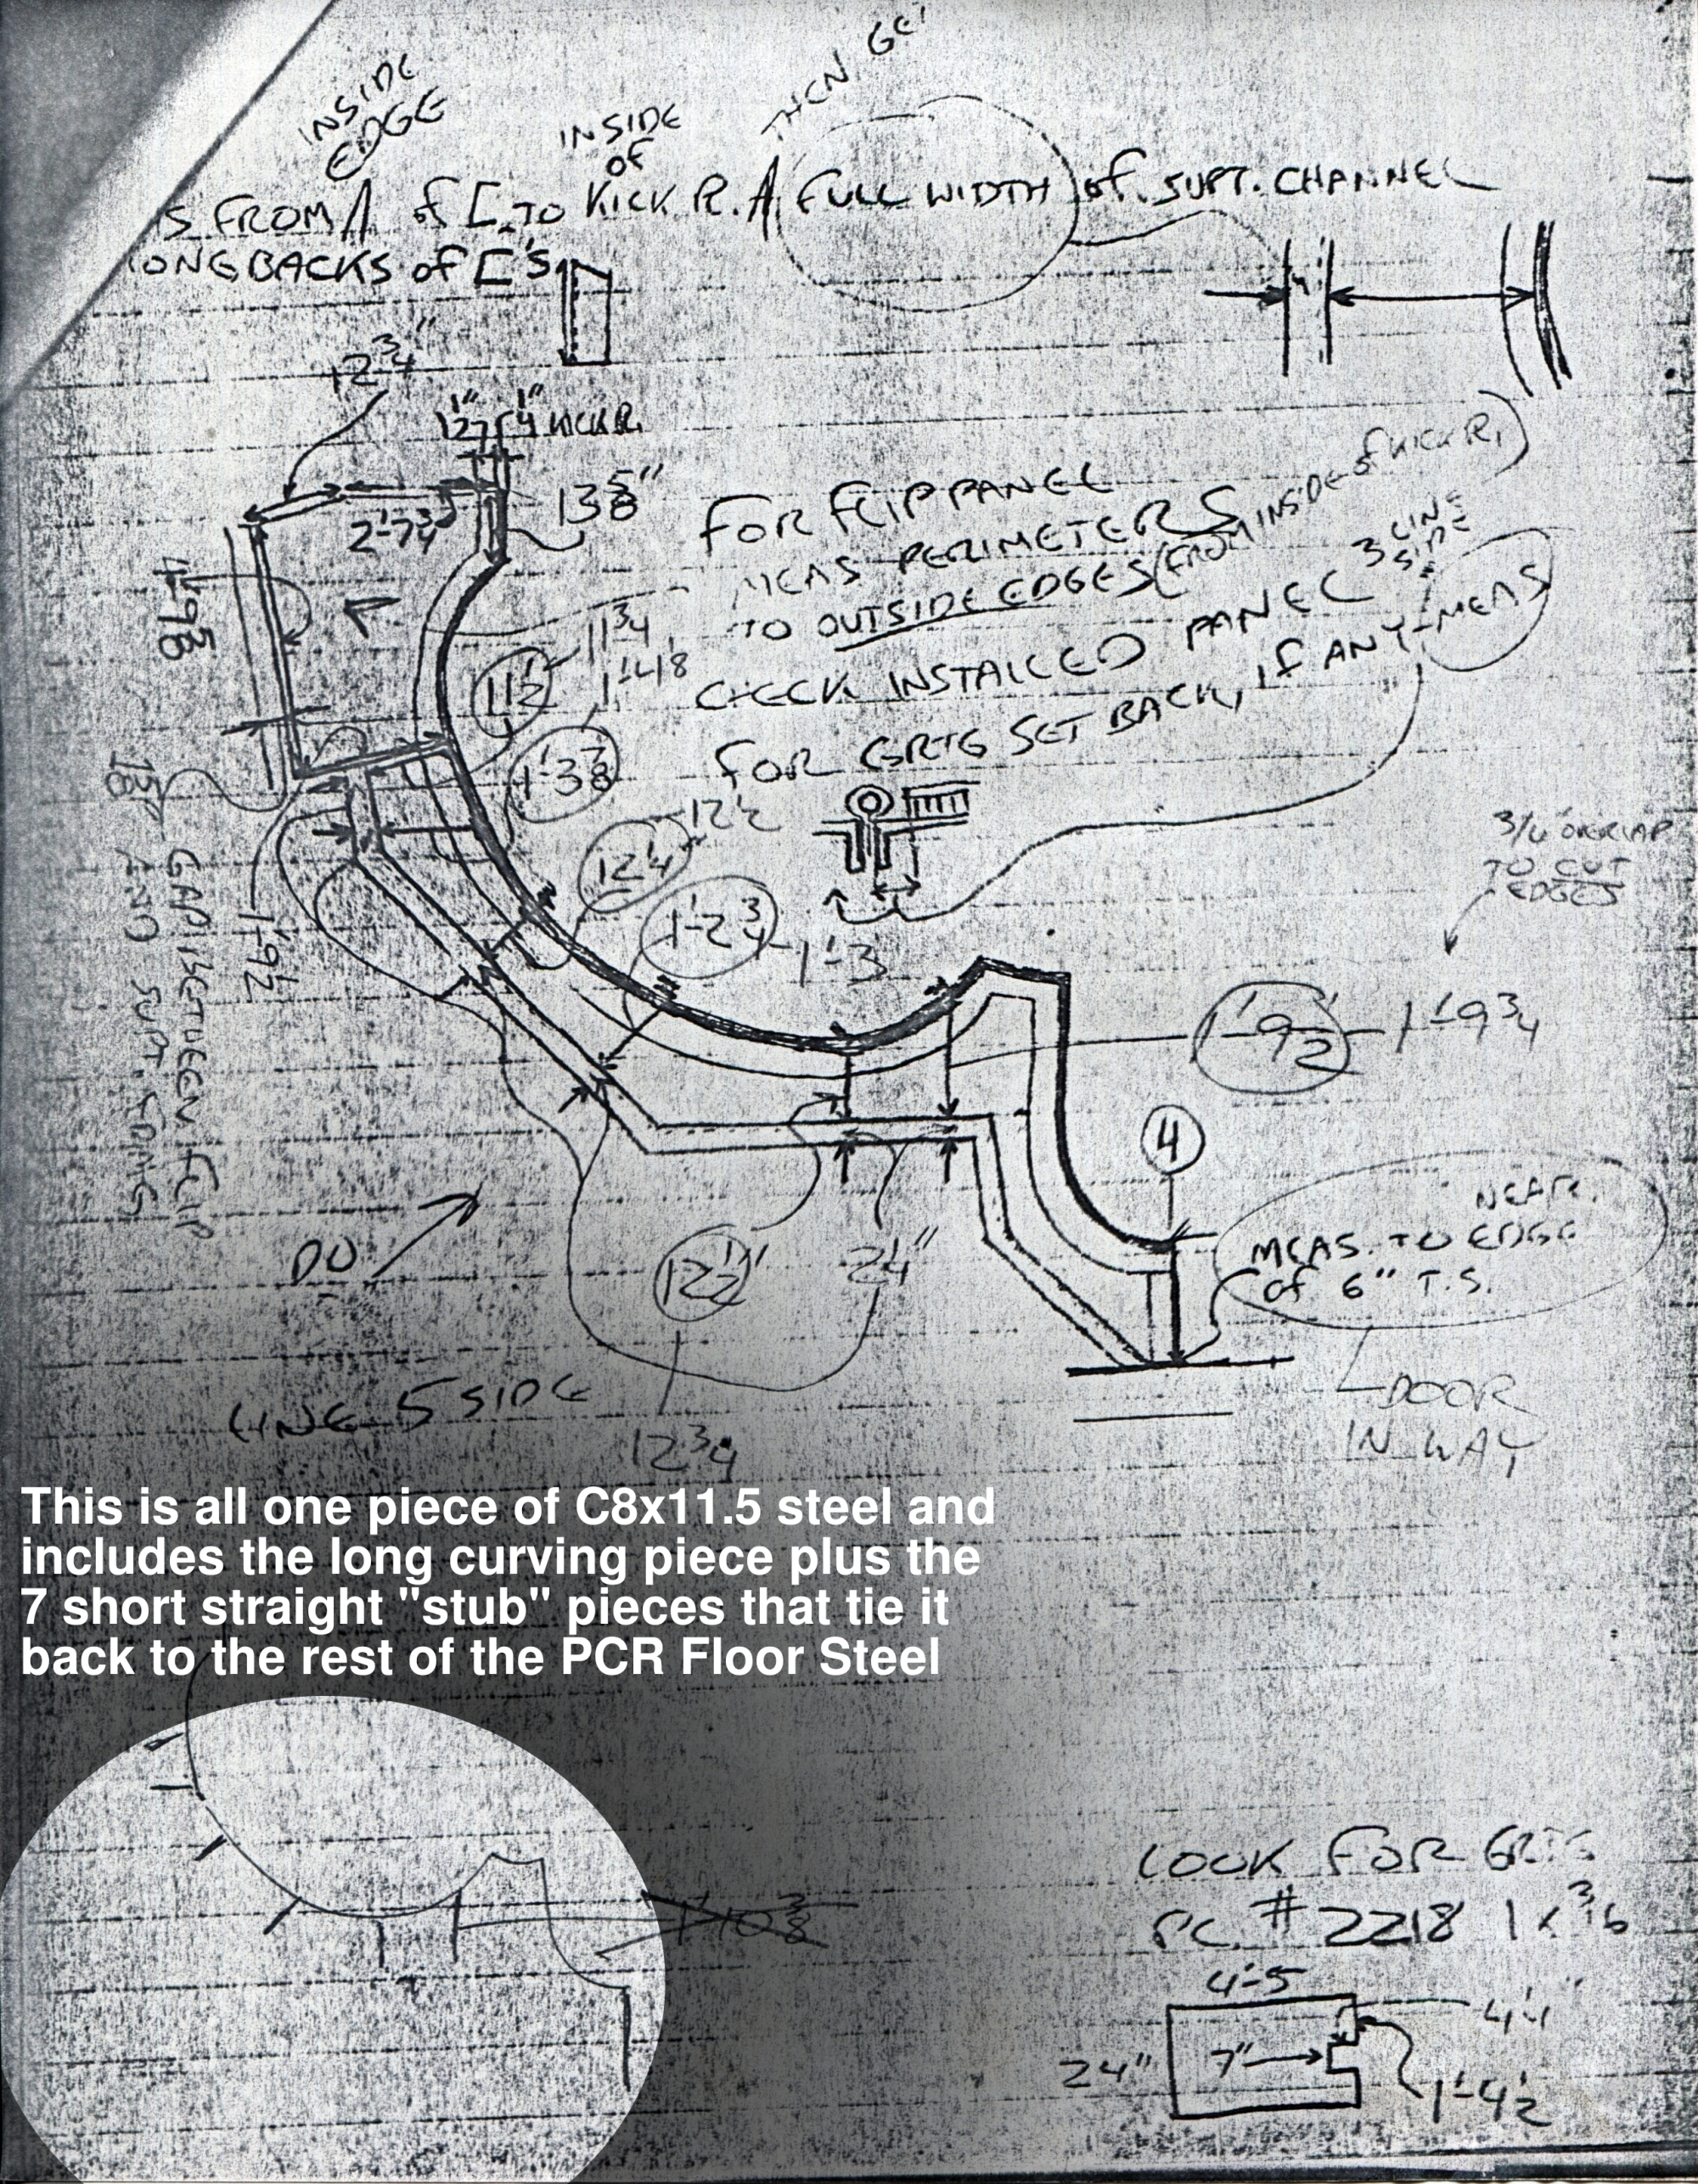 INSIDE
EDGE
INSIDE
OF
THEN GET
S FROM OF [ TO KICK PL. FULL WIDTH OF SUPT. CHANNEL
ONG BACKS OF ['S
12 3/4"
1 1/2" 1/4" KICK PL.
13 5/8"
2'-7 3/4
FOR FLIP PANEL
MEAS PERIMETERS
TO OUTSIDE EDGES (FROM INSIDE OF KICK PL)
CHECK INSTALLED PANEL 3 LINE
SIDE
FOR GRTG SET BACK, IF ANY - MEAS
4'-9 5/8
11 3/4
11 1/2
1'-3 7/8
12 1/2
12 1/4
1'-2 3/4 - 1'-3
3/16 OVERLAP
TO CUT
EDGES
1'-9 1/2 - 1'-9 3/4
GAP BETWEEN FLIP
AND SUPT. FRMG
1'-9 1/2
4
NEAR.
MEAS. TO EDGE
OF 6" T.S.
DO
12 1/2"
2 1/4"
DOOR
IN WAY
LINE 5 SIDE
12 3/4
This is all one piece of C8x11.5 steel and
includes the long curving piece plus the
7 short straight "stub" pieces that tie it
back to the rest of the PCR Floor Steel
1'-10 3/8
LOOK FOR GRTG
PC. # 2218 1 x 3/16
4'-5
24"
7"
4 1/4"
1'-4 1/2